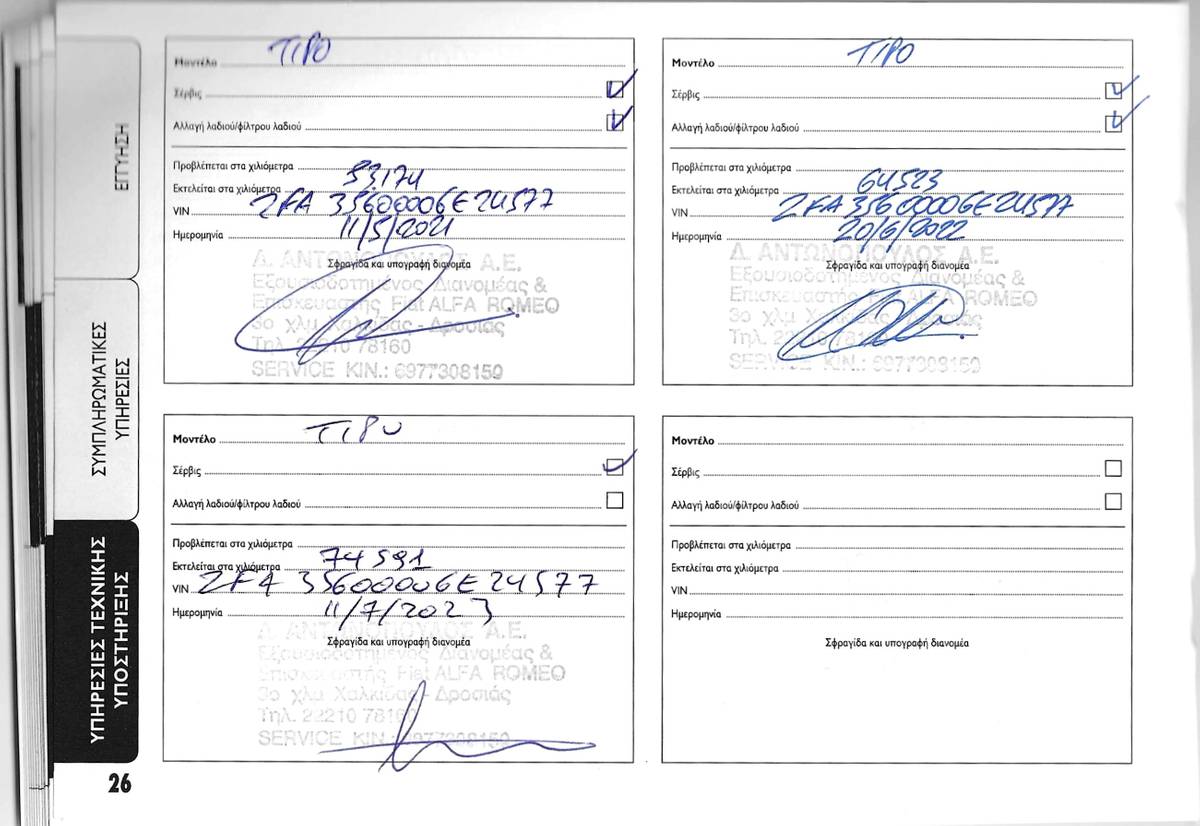 ΕΓΓΥΗΣΗ
ΣΥΜΠΛΗΡΩΜΑΤΙΚΕΣ
ΥΠΗΡΕΣΙΕΣ
ΥΠΗΡΕΣΙΕΣ ΤΕΧΝΙΚΗΣ
ΥΠΟΣΤΗΡΙΞΗΣ
Μοντέλο TIPO
Σέρβις
Αλλαγή λαδιού/φίλτρου λαδιού
Προβλέπεται στα χιλιόμετρα
Εκτελείται στα χιλιόμετρα 53.174
VIN ZFA 35600006E24577
Ημερομηνία 11/5/2021
Σφραγίδα και υπογραφή διανομέα
Δ. ΑΝΤΩΝΟΠΟΥΛΟΣ Α.Ε.
Εξουσιοδοτημένος Διανομέας &
Επισκευαστής Fiat ALFA ROMEO
3ο χλμ Χαλκίδας - Δροσιάς
Τηλ. 22210 78160
SERVICE ΚΙΝ.: 6977308159
Μοντέλο TIPO
Σέρβις
Αλλαγή λαδιού/φίλτρου λαδιού
Προβλέπεται στα χιλιόμετρα
Εκτελείται στα χιλιόμετρα 64523
VIN ZFA 35600006E24577
Ημερομηνία 20/6/2022
Σφραγίδα και υπογραφή διανομέα
Δ. ΑΝΤΩΝΟΠΟΥΛΟΣ Α.Ε.
Εξουσιοδοτημένος Διανομέας &
Επισκευαστής Fiat ALFA ROMEO
3ο χλμ Χαλκίδας - Δροσιάς
Τηλ. 22210 78160
SERVICE ΚΙΝ.: 6977308159
Μοντέλο TIPO
Σέρβις
Αλλαγή λαδιού/φίλτρου λαδιού
Προβλέπεται στα χιλιόμετρα
Εκτελείται στα χιλιόμετρα 74591
VIN ZFA 35600006E24577
Ημερομηνία 11/7/2023
Σφραγίδα και υπογραφή διανομέα
Δ. ΑΝΤΩΝΟΠΟΥΛΟΣ Α.Ε.
Εξουσιοδοτημένος Διανομέας &
Επισκευαστής Fiat ALFA ROMEO
3ο χλμ Χαλκίδας - Δροσιάς
Τηλ. 22210 78160
SERVICE ΚΙΝ.: 6977308159
Μοντέλο
Σέρβις
Αλλαγή λαδιού/φίλτρου λαδιού
Προβλέπεται στα χιλιόμετρα
Εκτελείται στα χιλιόμετρα
VIN
Ημερομηνία
Σφραγίδα και υπογραφή διανομέα
26